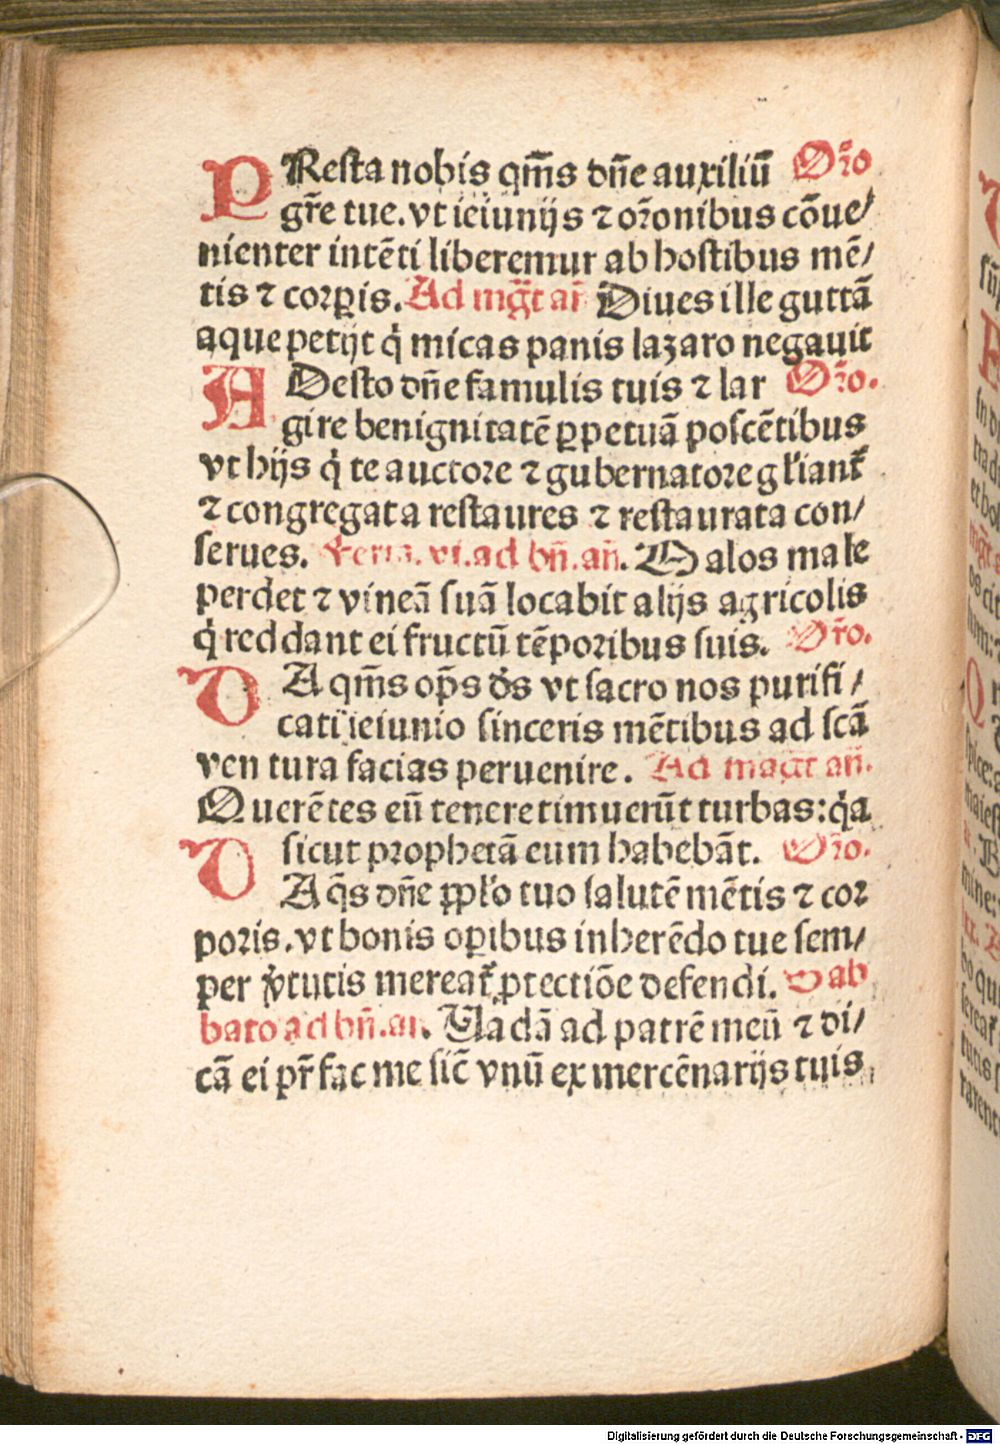 PResta nobis qm̄s dn̄e auxiliū Or̄o
gr̄e tue. vt ieiunijs ⁊ or̄onibus cōue/
nienter intēti liberemur ab hostibus mē/
tis ⁊ corꝑis. Ad mg̅t an̄ Diues ille guttā
aque petijt q̇ micas panis lazaro negauit
ADesto dn̄e famulis tuis ⁊ lar Or̄o.
gire benignitatē ꝑpetuā poscētibus
vt hijs q̇ te auctore ⁊ gubernatore gl̓iant᷑
⁊ congregata restaures ⁊ restaurata con/
serues. Feria. vi. ad bn̄. an̄. Malos male
perdet ⁊ vineā suā locabit alijs agricolis
q̇ reddant ei fructū tēporibus suis. Or̄o.
DA qm̄s op̄s d̓s vt sacro nos purifi/
cati ieiunio sinceris mētibus ad scā
ventura facias peruenire. Ad mag̅t an̄.
Querētes eū tenere timuerūt turbas: q̇a
sicut prophetā eum habebāt. Or̄o.
DA q̄s dn̄e ꝓpl̓o tuo salutē mētis ⁊ cor
poris. vt bonis oꝑibus inherēdo tue sem/
per v̓tutis mereat᷑ ꝓtectiōe defendi. Sab
bato ad bn̄. an̄. Vadā ad patrē meū ⁊ di/
cā ei pr̄ fac me sic̄ vnū ex mercēnarijs tuis
Digitalisierung gefördert durch die Deutsche Forschungsgemeinschaft - DFG